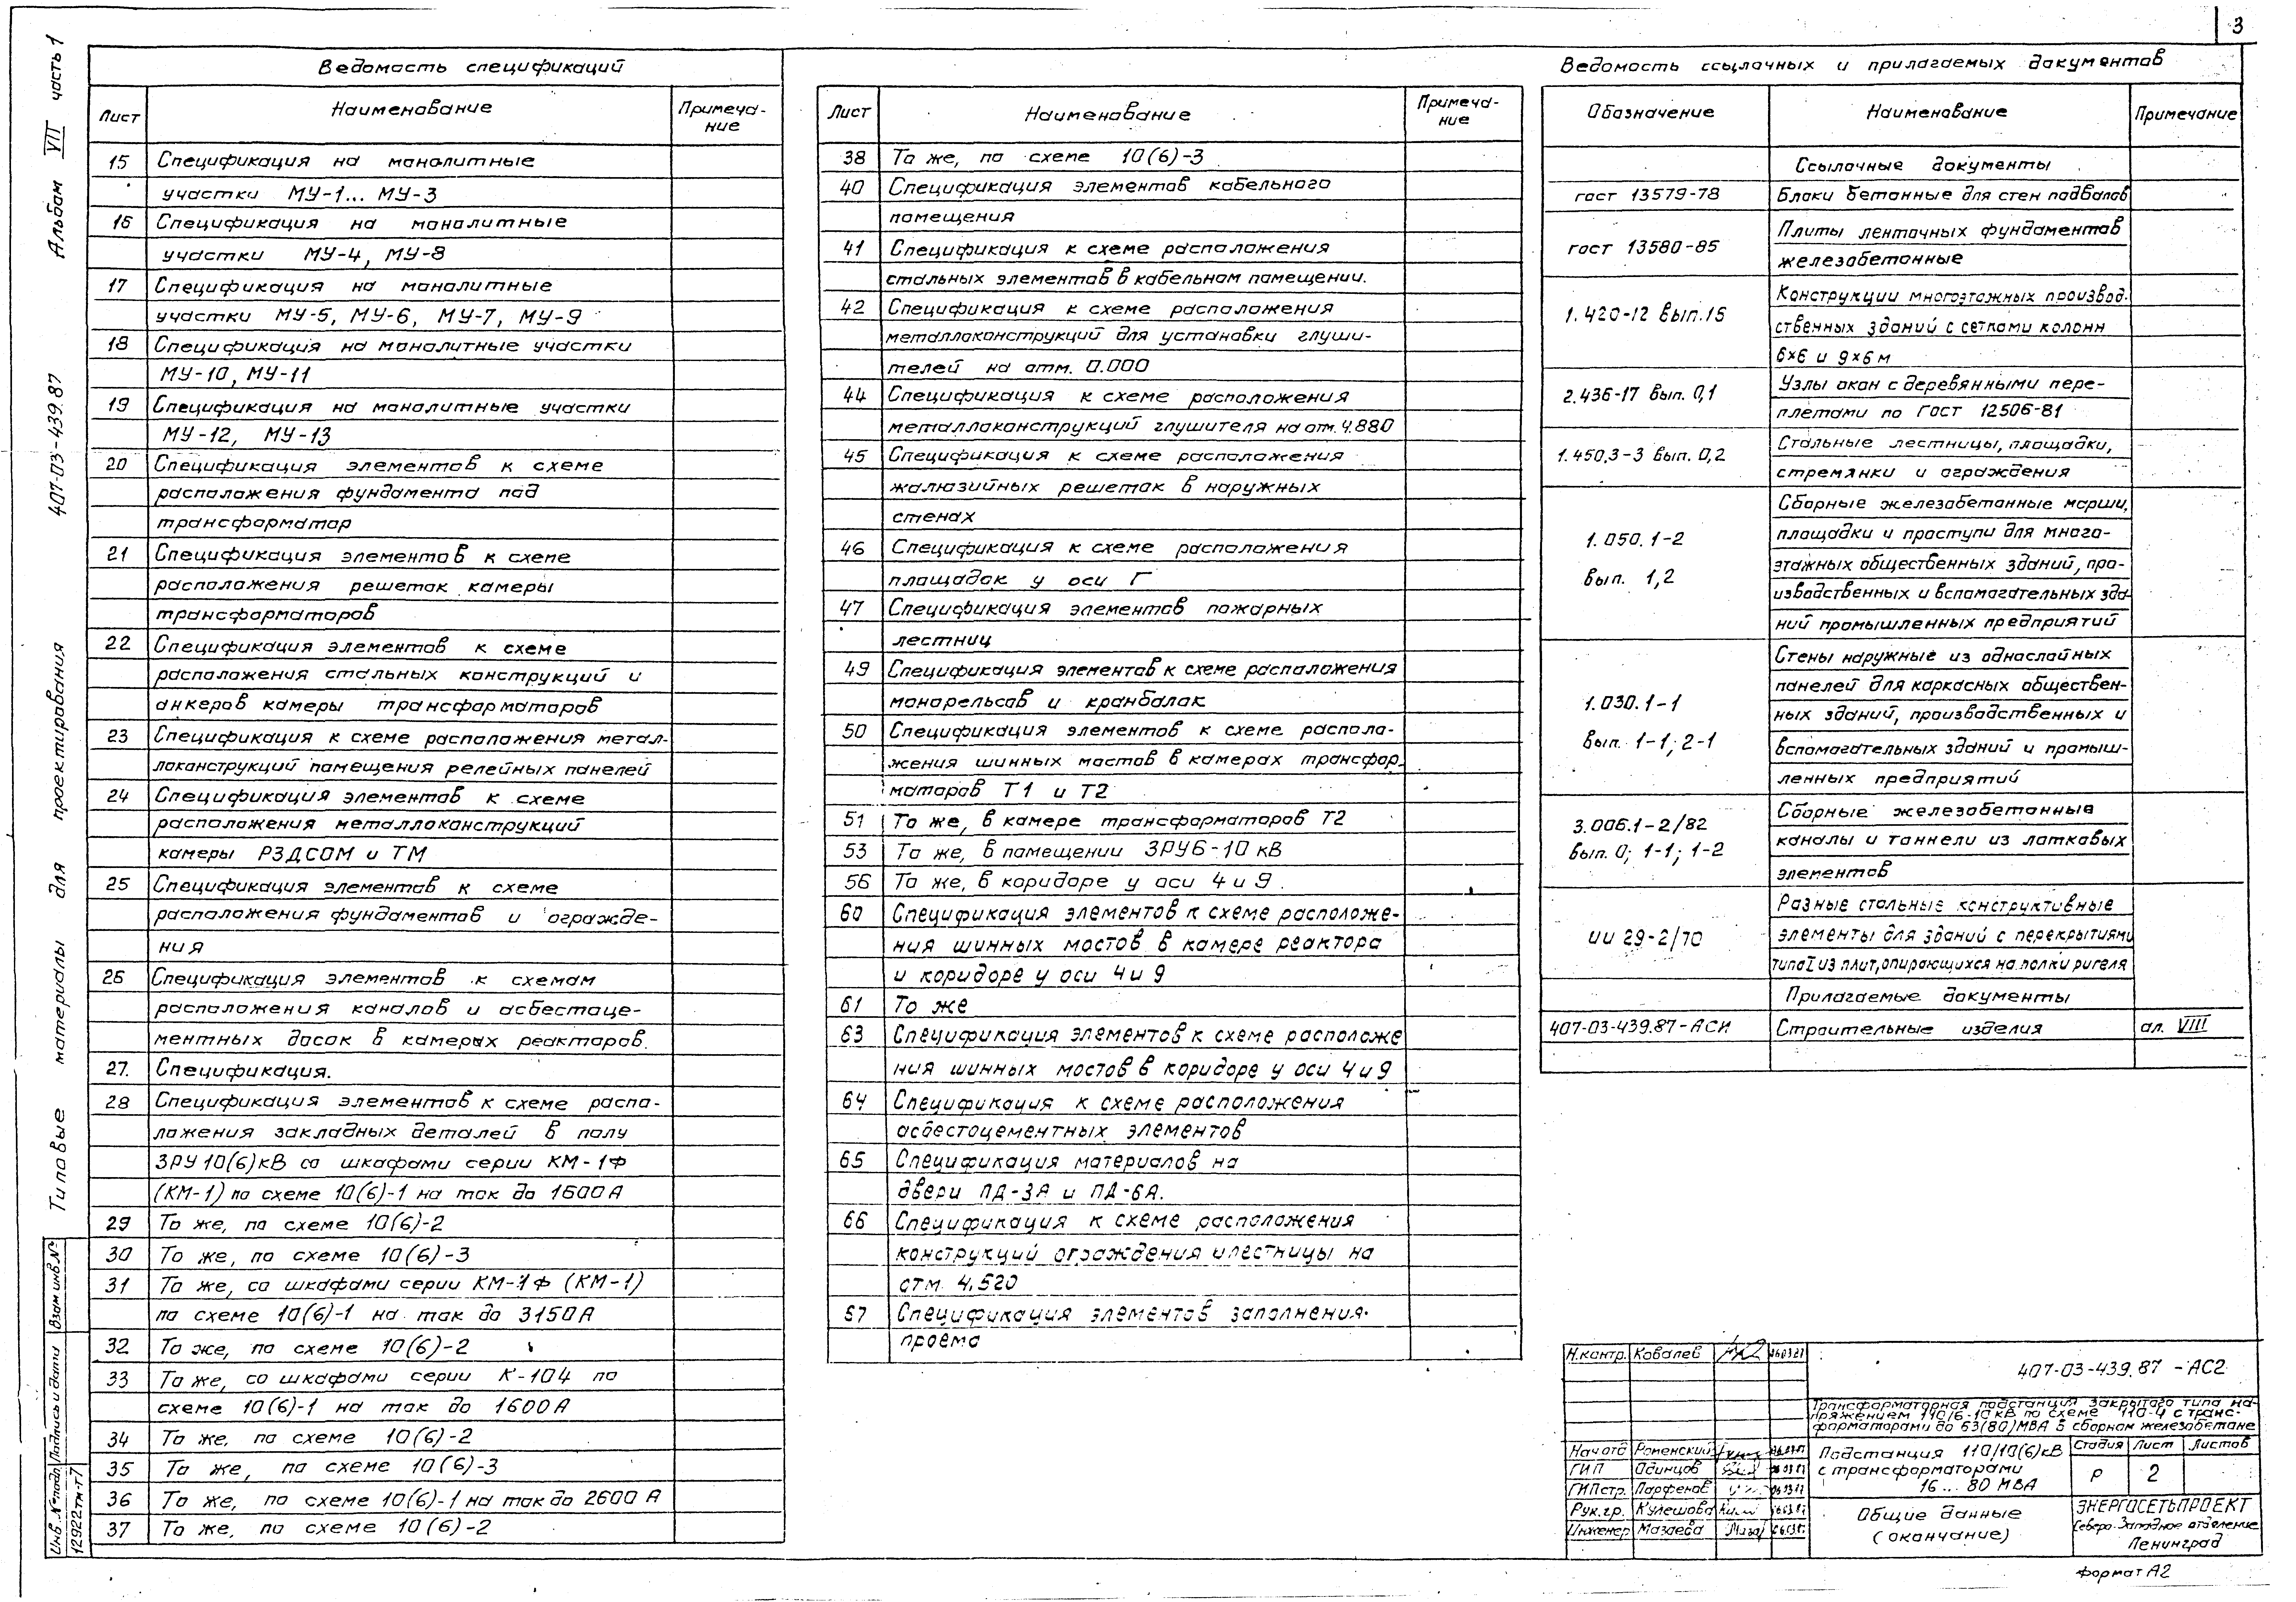 3
Ведомость спецификаций
Лист
Наименование
Примеча-
ние
15 Спецификация на монолитные
участки МУ-1... МУ-3
16 Спецификация на монолитные
участки МУ-4, МУ-8
17 Спецификация на монолитные
участки МУ-5, МУ-6, МУ-7, МУ-9
18 Спецификация на монолитные участки
МУ-10, МУ-11
19 Спецификация на монолитные участки
МУ-12, МУ-13
20 Спецификация элементов к схеме
расположения фундамента под
трансформатор
21 Спецификация элементов к схеме
расположения решеток камеры
трансформаторов
22 Спецификация элементов к схеме
расположения стальных конструкций и
анкеров камеры трансформаторов
23 Спецификация к схеме расположения метал-
локонструкций помещения релейных панелей
24 Спецификация элементов к схеме
расположения металлоконструкций
камеры РЗДСОМ и ТМ
25 Спецификация элементов к схеме
расположения фундаментов и огражде-
ния
26 Спецификация элементов к схемам
расположения каналов и асбестоце-
ментных досок в камерах реакторов.
27. Спецификация.
28 Спецификация элементов к схеме распо-
ложения закладных деталей в полу
ЗРУ 10(6)кВ со шкафами серии КМ-1Ф
(КМ-1) по схеме 10(6)-1 на ток до 1600А
29 То же, по схеме 10(6)-2
30 То же, по схеме 10(6)-3
31 То же, со шкафами серии КМ-1Ф (КМ-1)
по схеме 10(6)-1 на ток до 3150А
32 То же, по схеме 10(6)-2
33 То же, со шкафами серии К-104 по
схеме 10(6)-1 на ток до 1600А
34 То же, по схеме 10(6)-2
35 То же, по схеме 10(6)-3
36 То же, по схеме 10(6)-1 на ток до 2600 А
37 То же, по схеме 10(6)-2
Лист
Наименование
Примеча-
ние
38 То же, по схеме 10(6)-3
40 Спецификация элементов кабельного
помещения
41 Спецификация к схеме расположения
стальных элементов в кабельном помещении.
42 Спецификация к схеме расположения
металлоконструкций для установки глуши-
телей на отм. 0.000
44 Спецификация к схеме расположения
металлоконструкций глушителя на отм. 4.880
45 Спецификация к схеме расположения
жалюзийных решеток в наружных
стенах
46 Спецификация к схеме расположения
площадок у оси Г
47 Спецификация элементов пожарных
лестниц
49 Спецификация элементов к схеме расположения
монорельсов и кранбалок
50 Спецификация элементов к схеме располо-
жения шинных мостов в камерах трансфор-
маторов Т1 и Т2
51 То же, в камере трансформаторов Т2
53 То же, в помещении ЗРУ6-10 кВ
56 То же, в коридоре у оси 4 и 9.
60 Спецификация элементов к схеме расположе-
ния шинных мостов в камере реактора
и коридоре у оси 4 и 9
61 То же
63 Спецификация элементов к схеме расположе
ния шинных мостов в коридоре у оси 4 и 9
64 Спецификация к схеме расположения
асбестоцементных элементов
65 Спецификация материалов на
двери ПД-3А и ПД-6А.
66 Спецификация к схеме расположения
конструкций ограждения и лестницы на
отм. 4.520
67 Спецификация элементов заполнения
проема
Ведомость ссылочных и прилагаемых документов
Обозначение
Наименование
Примечание
Ссылочные документы
гост 13579-78 Блоки бетонные для стен подвалов
гост 13580-85 Плиты ленточных фундаментов
железобетонные
1.420-12 вып.15 Конструкции многоэтажных производ-
ственных зданий с сетками колонн
6×6 и 9×6 м
2.436-17 вып. 0,1 Узлы окон с деревянными пере-
плетами по Гост 12506-81
1.450.3-3 вып. 0,2 Стальные лестницы, площадки,
стремянки и ограждения
1.050.1-2
вып. 1,2
Сборные железобетонные марши,
площадки и проступи для много-
этажных общественных зданий, про-
изводственных и вспомогательных зда-
ний промышленных предприятий
1.030.1-1
вып. 1-1; 2-1
Стены наружные из однослойных
панелей для каркасных обществен-
ных зданий, производственных и
вспомогательных зданий и промыш-
ленных предприятий
3.006.1-2/82
вып. 0; 1-1; 1-2
Сборные железобетонные
каналы и тоннели из лотковых
элементов
ИИ 29-2/70
Разные стальные конструктивные
элементы для зданий с перекрытиями
типа I из плит, опирающихся на полки ригеля
Прилагаемые документы
407-03-439.87-АСИ Строительные изделия ал. VIII
Н.контр. Ковалев
Нач.отд Роменский
ГИП Одинцов
ГИПстр. Парфенов
Рук.гр. Кулешова
Инженер Мазаева
407-03-439.87-АС2
Трансформаторная подстанция закрытого типа на-
пряжением 110/6-10 кВ по схеме 110-4 с транс-
форматорами до 63(80)МВА в сборном железобетоне
Подстанция 110/10(6)кВ
с трансформаторами
16...80 МВА
Стадия Лист Листов
Р 2
Общие данные
(окончание)
ЭНЕРГОСЕТЬПРОЕКТ
Северо-Западное отделение
Ленинград
Формат А2
Типовые материалы для проектирования 407-03-439.87 Альбом VII часть 1
Взам инв.№
Подпись и дата
Инв.№подл
12922тм-т7